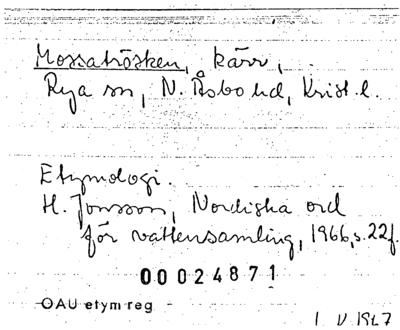 Mossatrösken, kärr,
Rya sn, N. Åsbo hd, Krist. l.
Etymologi.
H. Jonsson, Nordiska ord
för vattensamling, 1966, s. 22f.
00024871
OAU etym reg
1 V 1967